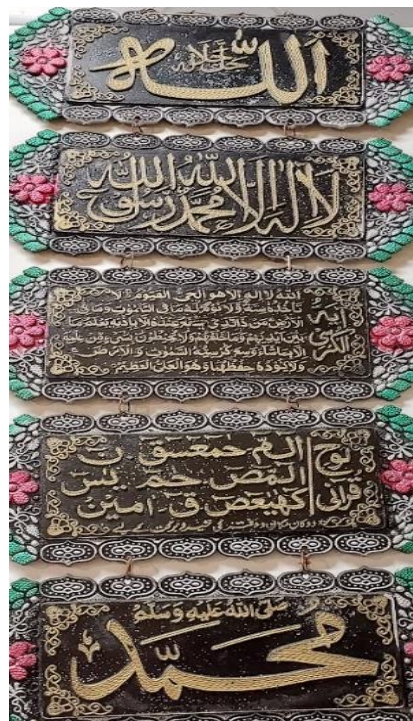 الله جل جلاله
لا اله الا الله محمد رسول الله
آية الكرسي
الله لا اله الا هو الحي القيوم لا
تأخذه سنة ولا نوم له ما في السموت وما في
الارض من ذا الذي يشفع عنده الا باذنه يعلم ما
بين ايديهم وما خلفهم ولا يحيطون بشيء من علمه
الا بما شاء وسع كرسيه السموت والارض
ولا يؤده حفظهما وهو العلي العظيم
لوح قرآنی
الٓمٓر حمعسق ن
الٓمٓصٓ حم یس
کهیعص ق امین
صلى الله عليه وسلم
محمد